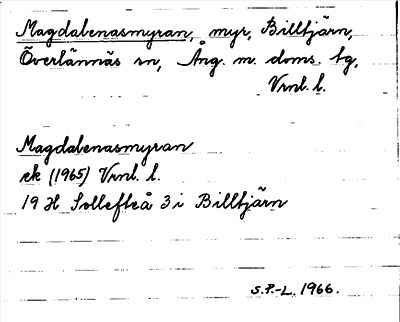 Magdalenasmyran, myr, Billtjärn,
Överlännäs sn, Ång. m. doms. bg,
Vrnl. l.
Magdalenasmyran
ek (1965) Vrnl. l.
19 H Sollefteå 3 i Billtjärn
S.P.-L. 1966.